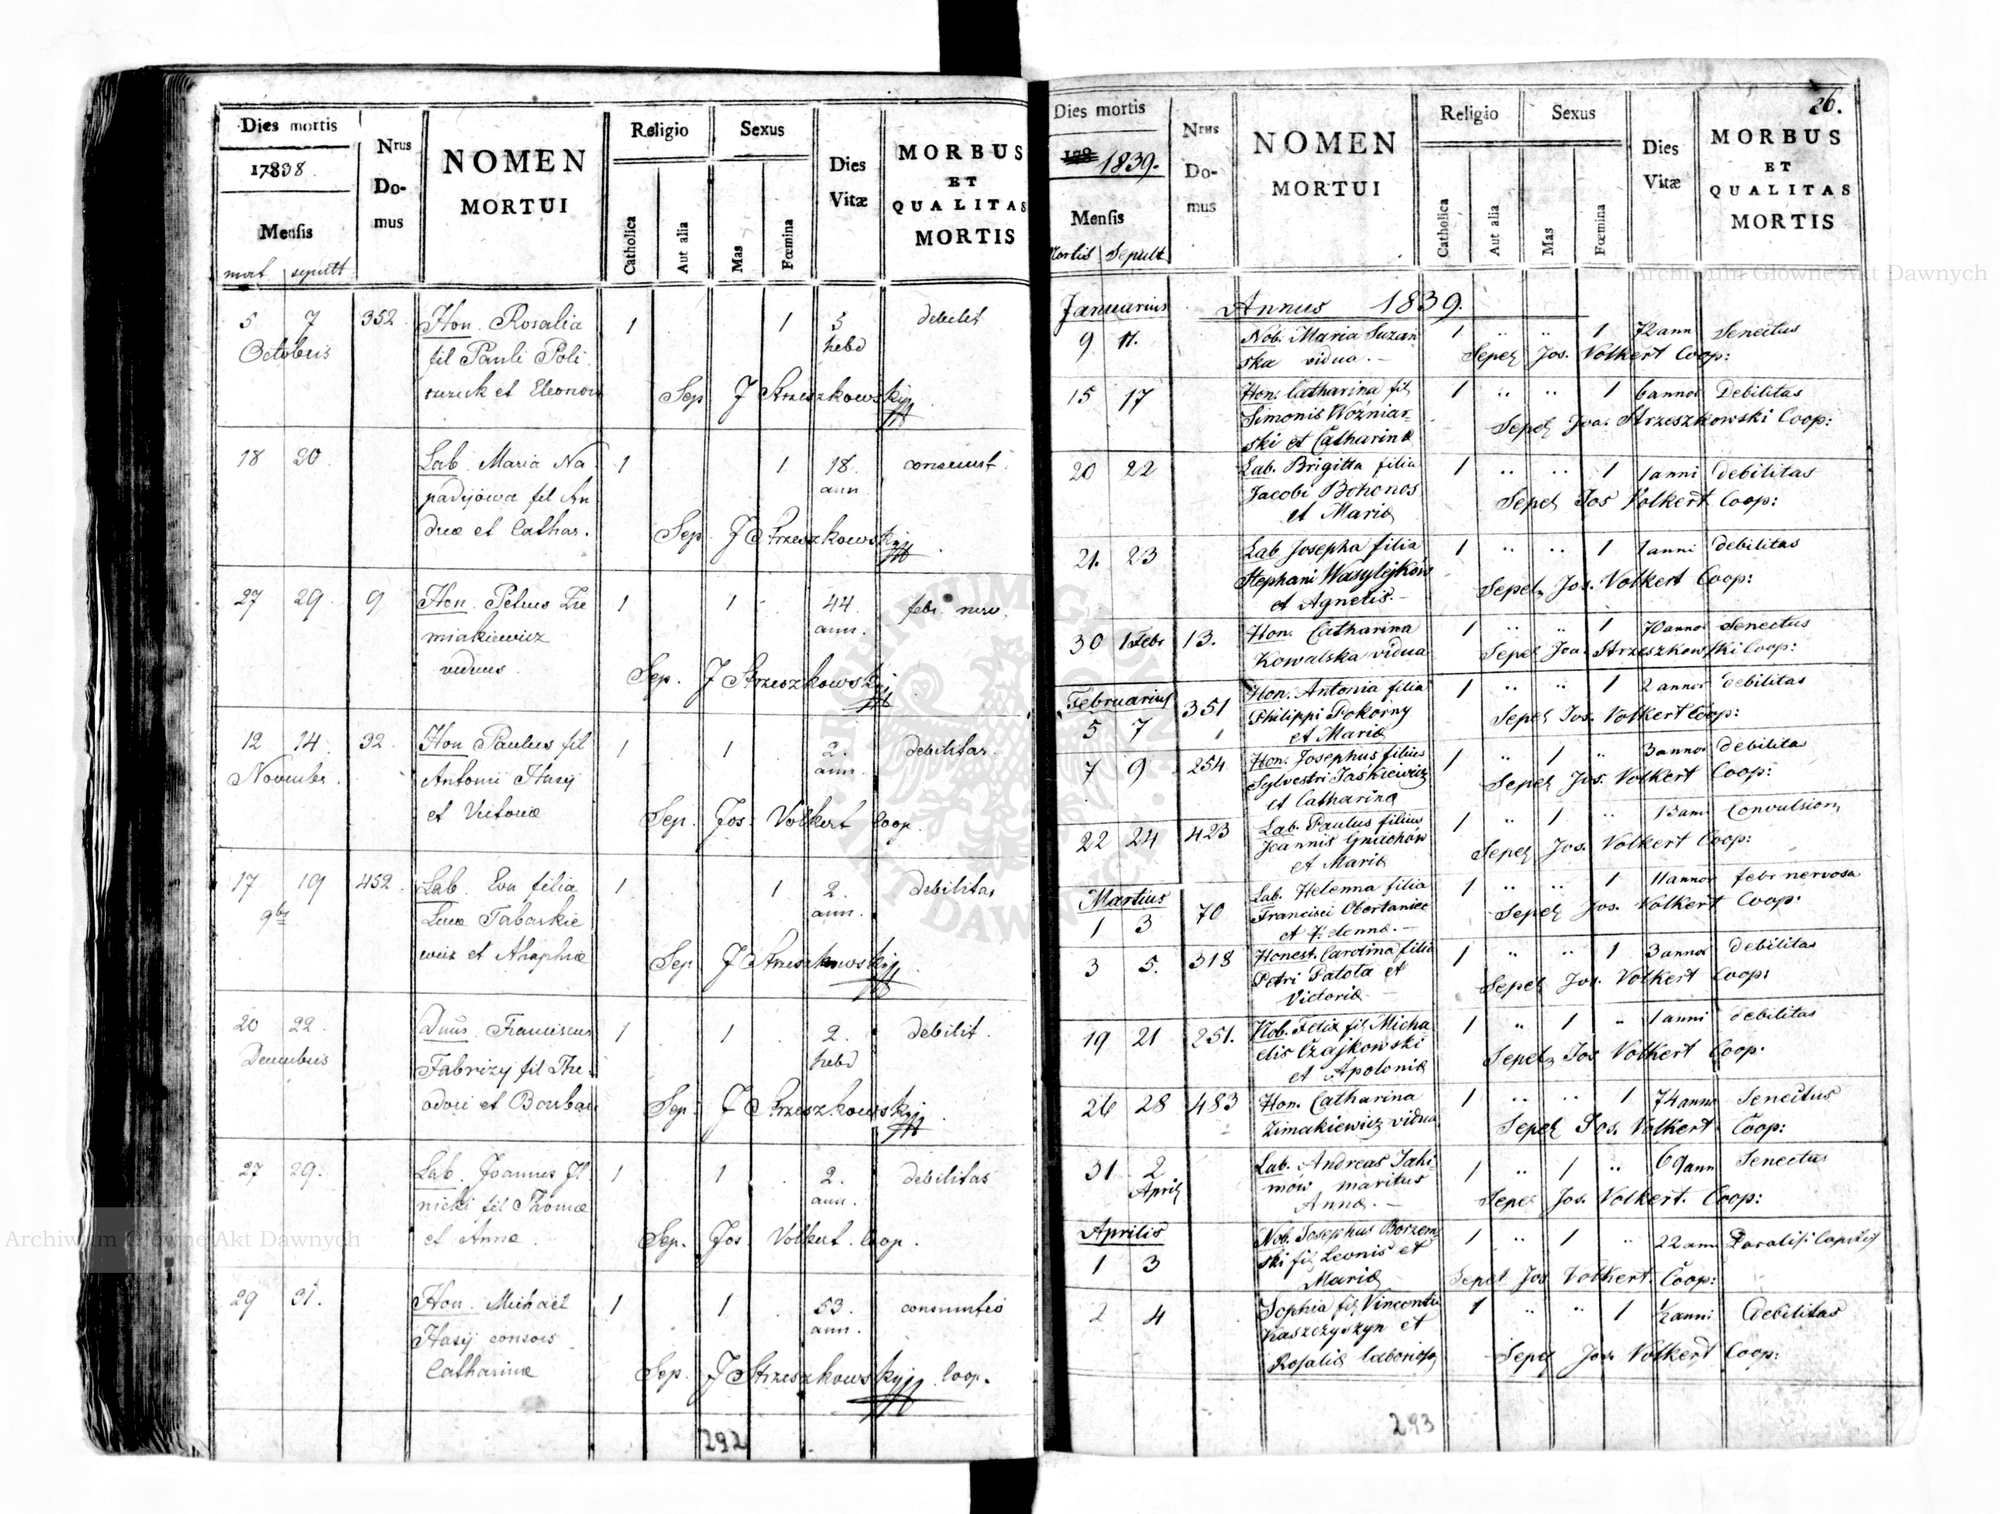 Dies mortis
17838.
Mensis
mort sepult
Nrus
Do-
mus
NOMEN
MORTUI
Religio
Catholica
Aut alia
Sexus
Mas
Fœmina
Dies
Vitæ
MORBUS
ET
QUALITAS
MORTIS
5 7 352 Hon. Rosalia 1 1 5 debilit
Octobris fil Pauli Poli hebd
et Eleonor
Sep J Strzeszkowskij
18 20 Lab. Maria Na 1 1 18. consumt.
padijowa fil An ann.
dreæ et Cathar.
Sep. J Strzeszkowskij
27 29 9 Hon. Petrus Zie 1 1 44 febr. nerv.
miakiewicz ann.
viduus
Sep. J Strzeszkowskij
12 14 32. Hon Paulus fil 1 1 2. debilitas.
Novembr. Antonii Hasij ann.
et Victoriæ
Sep. Jos. Volkert Coop.
17 19 452. Lab. Eva filia 1 1 2. debilitas
9br Lucæ Tabaskie ann.
wicz et Ahaphiæ
Sep J Strzeszkowskij
20 22 Dnus. Franciscus 1 1 2 debilit.
Decembris Fabrizy fil The hebd
odori et Barbar
Sep. J Strzeszkowskij
27 29. Lab. Joannes Jl 1 1 2. debilitas
nicki fil Thomæ ann.
et Annæ.
Sep. Jos Volkert. Coop.
29 31. Hon. Michaël 1 1 53. consumtio
Hasij consors ann.
Catharinæ
Sep. J Strzeszkowskij Coop.
292
26.
Dies mortis
178 1839.
Mensis
Mortis Sepult
Nrus
Do-
mus
NOMEN
MORTUI
Religio
Catholica
Aut alia
Sexus
Mas
Fœmina
Dies
Vitæ
MORBUS
ET
QUALITAS
MORTIS
Januarius Annus 1839.
9 11. Nob. Maria Suzan 1 " " 1 72 ann Senectus
ska vidua.- Sepel Jos. Volkert Coop:
15 17 Hon. Catharina fil 1 " " 1 6 annor Debilitas
Simonis Wozniar Sepel Joa. Strzeszkowski Coop:
ski et Catharinæ
20 22 Lab. Brigitta filia 1 " " 1 1 anni debilitas
Jacobi Bohonos Sepel Jos Volkert Coop:
et Mariæ
21. 23 Lab Josepha filia 1 " " 1 1 anni debilitas
Stephani Wasylejkow Sepel Jos. Volkert Coop:
et Agnetis.-
30 1 Febr 13. Hon. Catharina 1 " " 1 70 annor Senectus
Kowalska vidua Sepel Joa. Strzeszkowski Coop:
Februarius 351 Hon. Antonia filia 1 " " 1 2 annor debilitas
5 7 Philippi Pokorny Sepel Jos. Volkert Coop:
et Mariæ
7 9 254 Hon. Josephus filius 1 " 1 " 3 annor debilitas
Sylvestri Jaśkiewicz Sepel Jos. Volkert Coop:
et Catharinæ
22 24 423 Lab. Paulus filius 1 " 1 " 13 ann Convulsion
Joannis Gniichów Sepel Jos. Volkert Coop:
et Mariæ
Martius 70 Lab. Helenna filia 1 " " 1 11 annor febr nervosa
1 3 Francisci Obertaniec Sepel Jos. Volkert Coop.
et Helennæ.-
3 5. 318 Honest. Carolina filia 1 " " 1 3 annor debilitas
Petri Patota et Sepel Jos. Volkert Coop:
Victoriæ
19 21 251. Nob. Felix fil Micha 1 " 1 " 1 anni debilitas
elis Czajkowski Sepel Jos Volkert Coop.
et Apoloniæ
26 28 483 Hon. Catharina 1 " " 1 74 annor Senectus
Zimakiewicz vidua Sepel Jos. Volkert Coop:
31 2 Lab. Andreas Jahi 1 " 1 " 69 ann Senectus
April mów maritus Sepel Jos. Volkert. Coop:
Annæ.-
Aprilis Nob. Josephus Borzem 1 " 1 " 22 ann Paralisi Capitis
1 3 ski fil Leonis et Sepel Jos Volkert. Coop:
Mariæ
2 4 Sophia fil Vincentii 1 " " 1 1/2 anni debilitas
Kaszczyszyn et Sepel Jos. Volkert Coop:
Rosaliæ laborios
293
Archiwum Główne Akt Dawnych
Archiwum Główne Akt Dawnych
ARCHIWUM GŁÓWNE AKT DAWNYCH